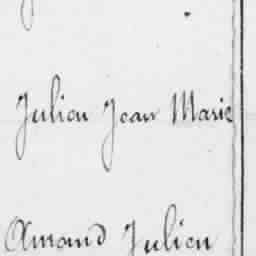 Julien Jean Marie
Amand Julien